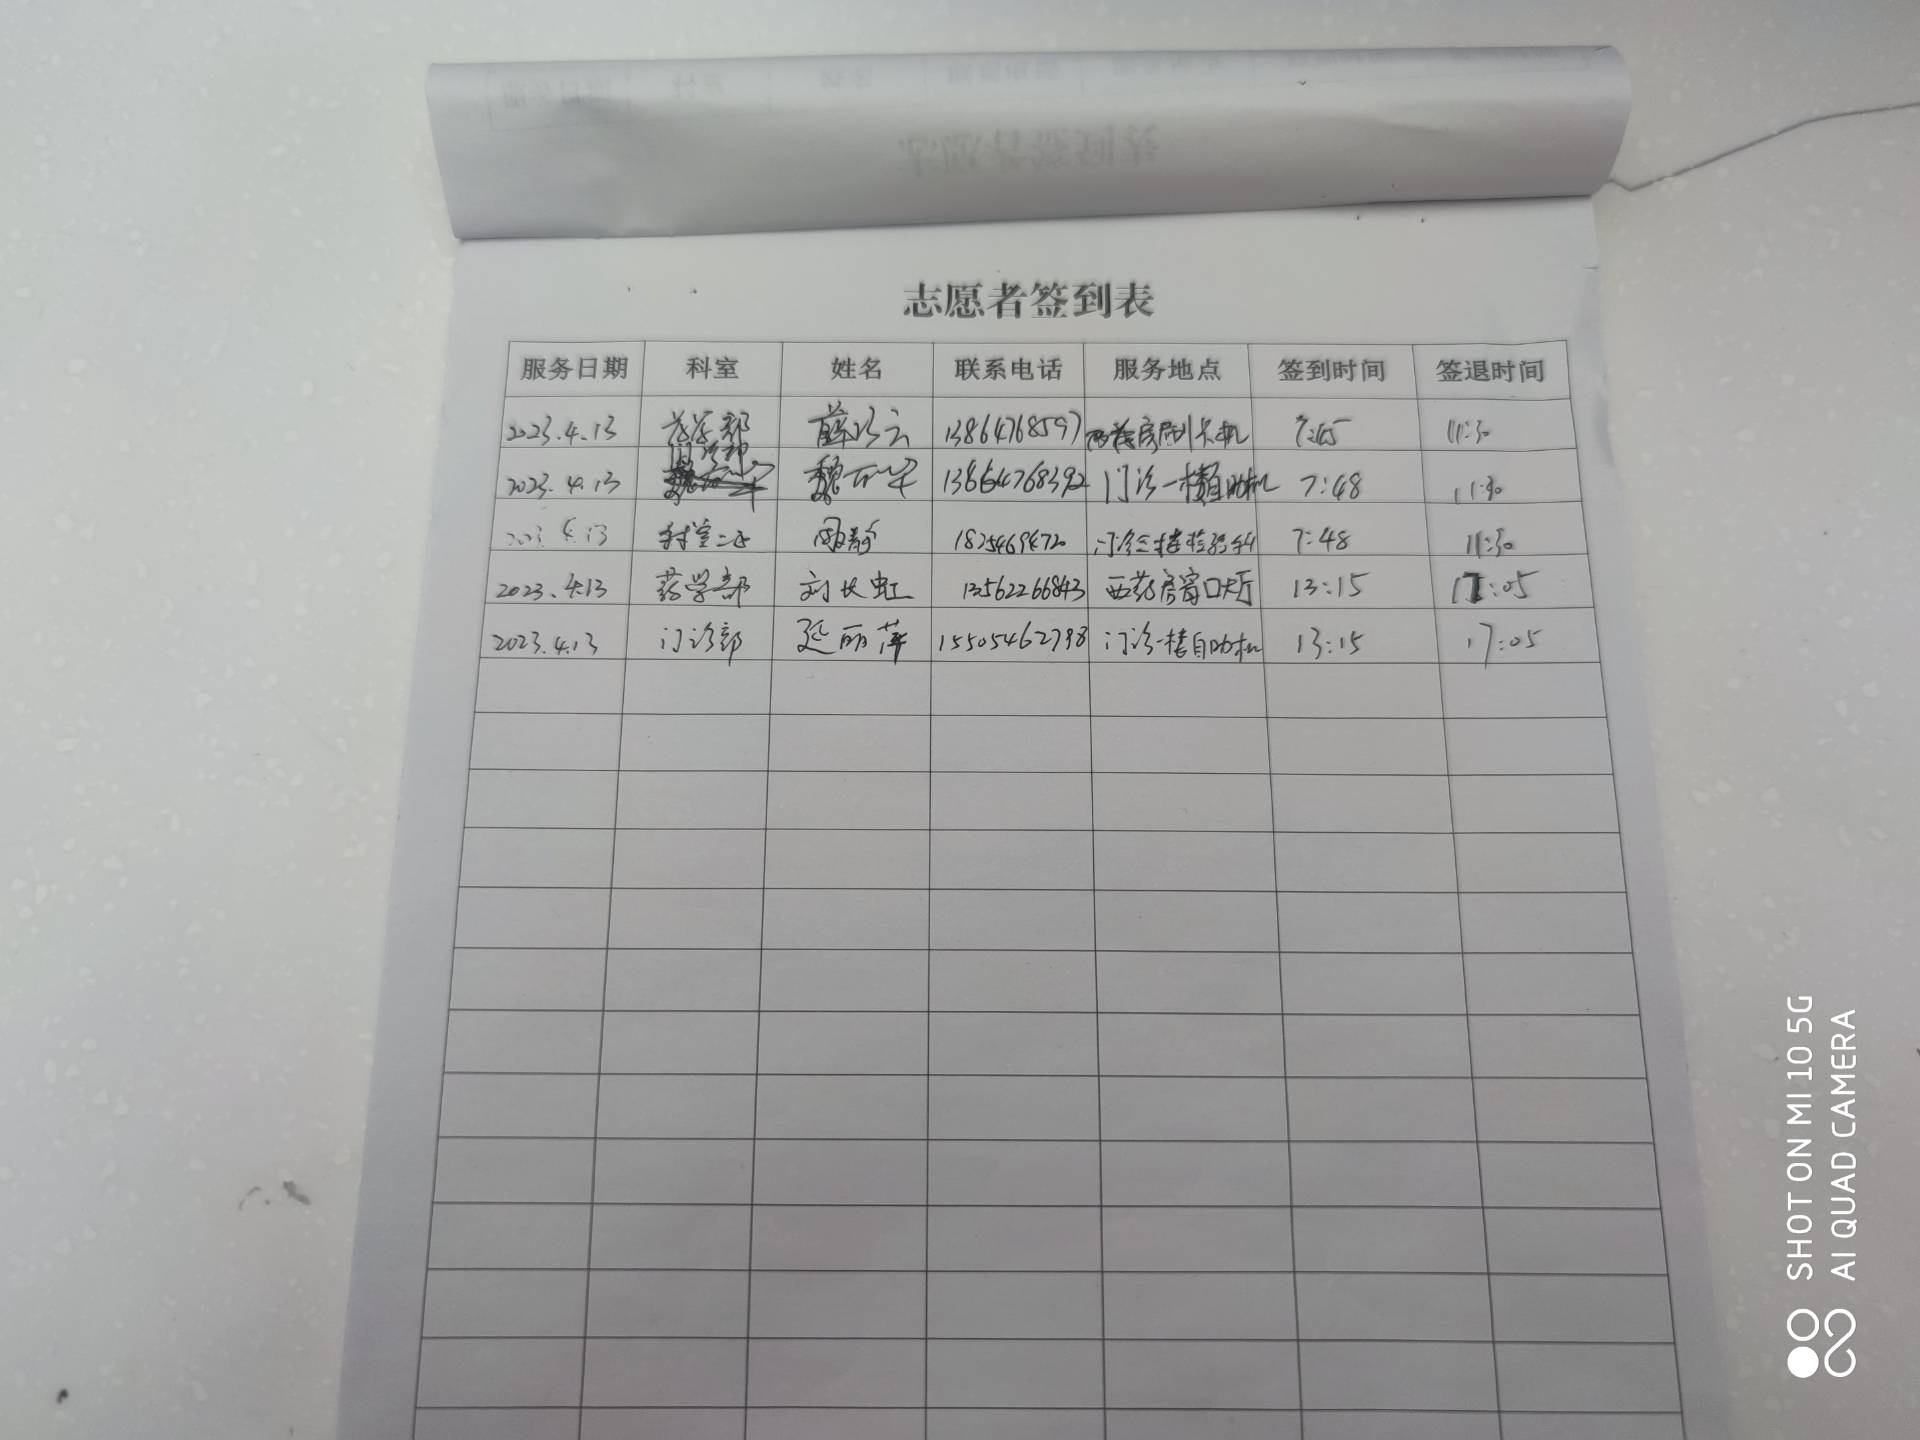 志愿者签到表
服务日期 科室 姓名 联系电话 服务地点 签到时间 签退时间
2023.4.13 药学部 薛 云 13864768597 西药房刷卡机 7:45 11:30
门诊部
2023.4.13 魏 华 13864768392 门诊一楼自助机 7:48 11:30
2023.4.13 周静 18254694720 门诊三楼检验科 7:48 11:30
2023.4.13 药学部 刘长虹 13562266843 西药房窗口大厅 13:15 17:05
2023.4.13 门诊部 延丽萍 15505462798 门诊一楼自助机 13:15 17:05
SHOT ON MI 10 5G
AI QUAD CAMERA